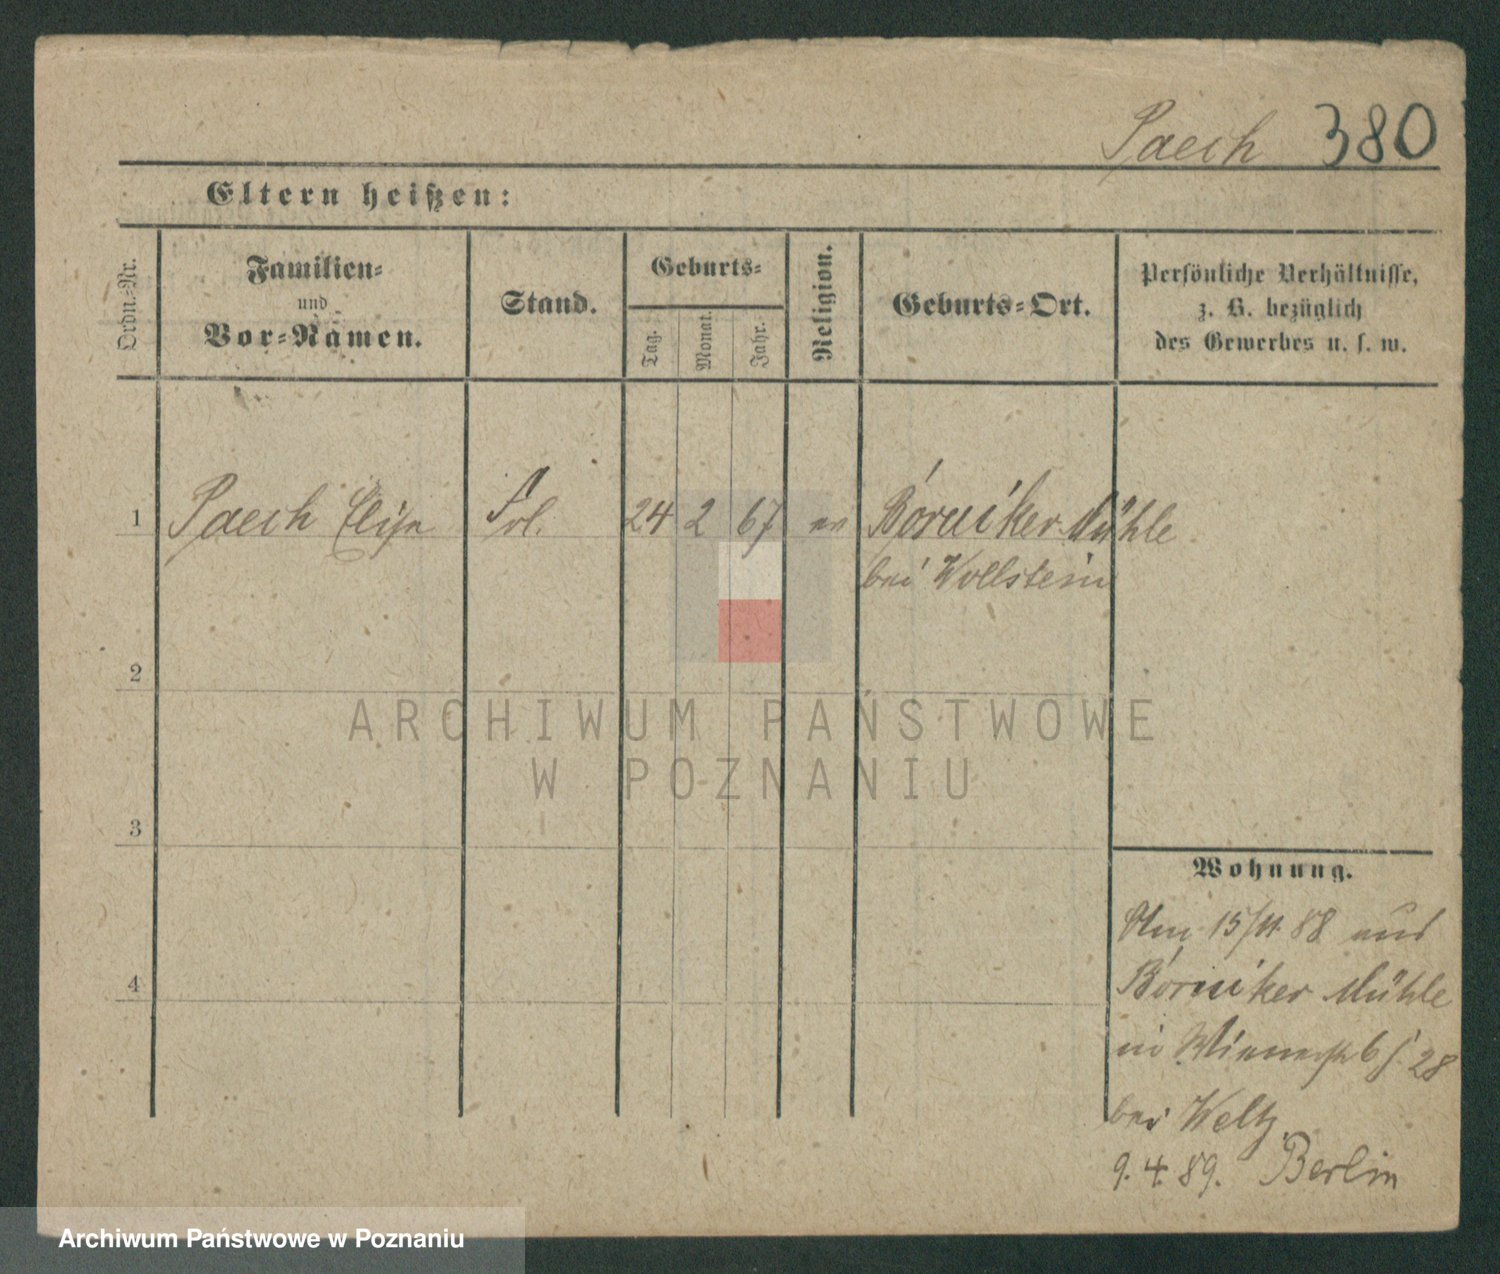 Paech 380
Eltern heißen:
Ordn.-Nr.
Familien-
und
Vor-Namen.
Stand.
Geburts-
Tag.
Monat.
Jahr.
Religion.
Geburts-Ort.
Persönliche Verhältnisse,
z. B. bezüglich
des Gewerbes u. s. w.
1 Paech Elise Frl. 24 2 67 ev Borniker Mühle
bei Wollstein
2
ARCHIWUM PAŃSTWOWE
W POZNANIU
3
Wohnung.
Am 15/11 88 aus
4
Borniker Mühle
in 28
bei Weltz
9. 4. 89. Berlin
Archiwum Państwowe w Poznaniu